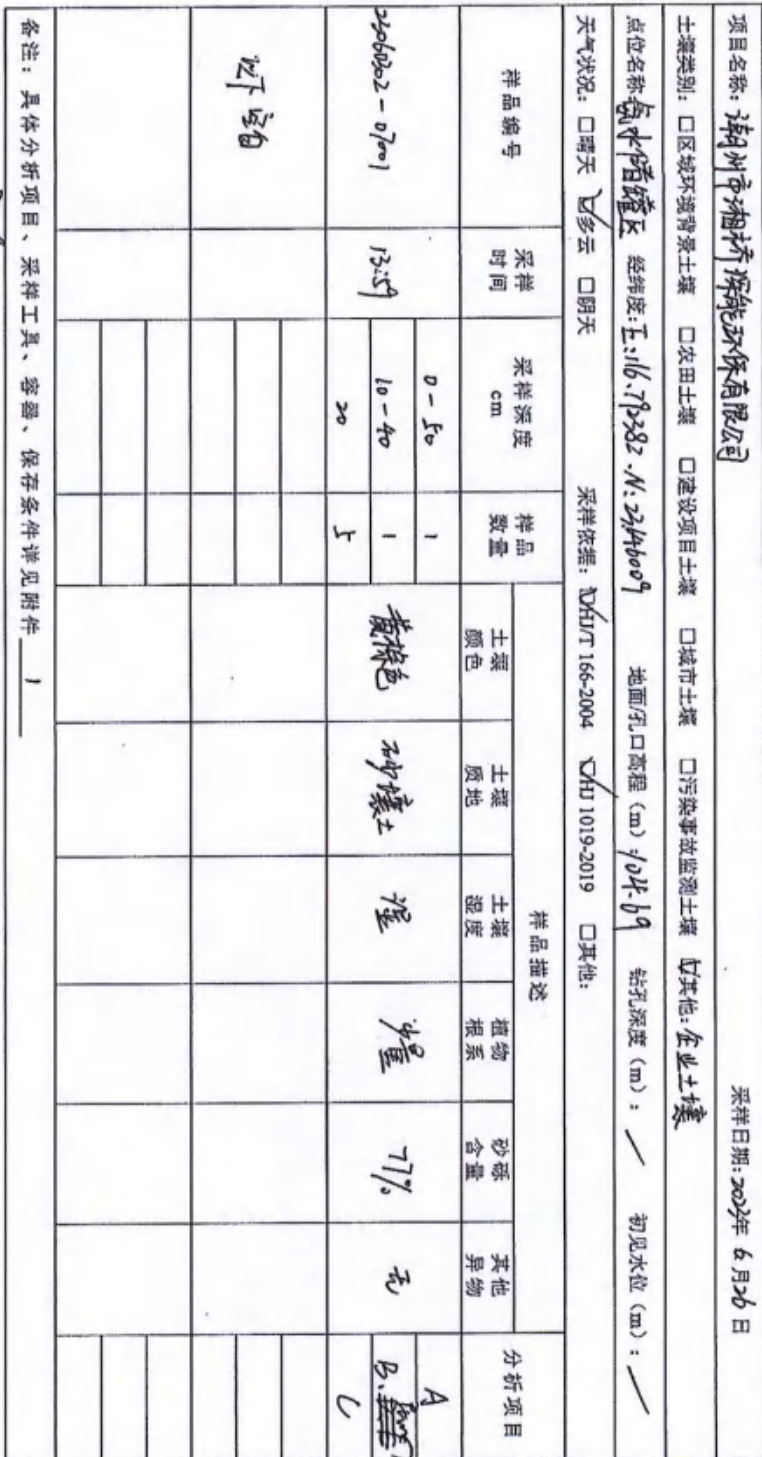 项目名称：潮州市湘桥深能环保有限公司 采样日期：2023年 6月26日
土壤类别：☐区域环境背景土壤 ☐农田土壤 ☐建设项目土壤 ☐城市土壤 ☐污染事故监测土壤 ☑其他：企业土壤
点位名称：氨水储罐区 经纬度：E:116.79382 .N: 地面/孔口高程（m）：104.69 钻孔深度（m）：/ 初见水位（m）：/
天气状况：☐晴天 ☑多云 ☐阴天 采样依据：☑HJ/T 166-2004 ☑HJ 1019-2019 ☐其他：
样品编号 采样时间 采样深度cm 样品数量 样品描述 分析项目
土壤颜色 土壤质地 土壤湿度 植物根系 砂砾含量 其他异物
0-50 1 A
23060302-07001 13:59 10-40 1 黄棕色 砂壤土 湿 少量 77% 无 B.
20 5 C
以下空白
备注：具体分析项目、采样工具、容器、保存条件详见附件 1